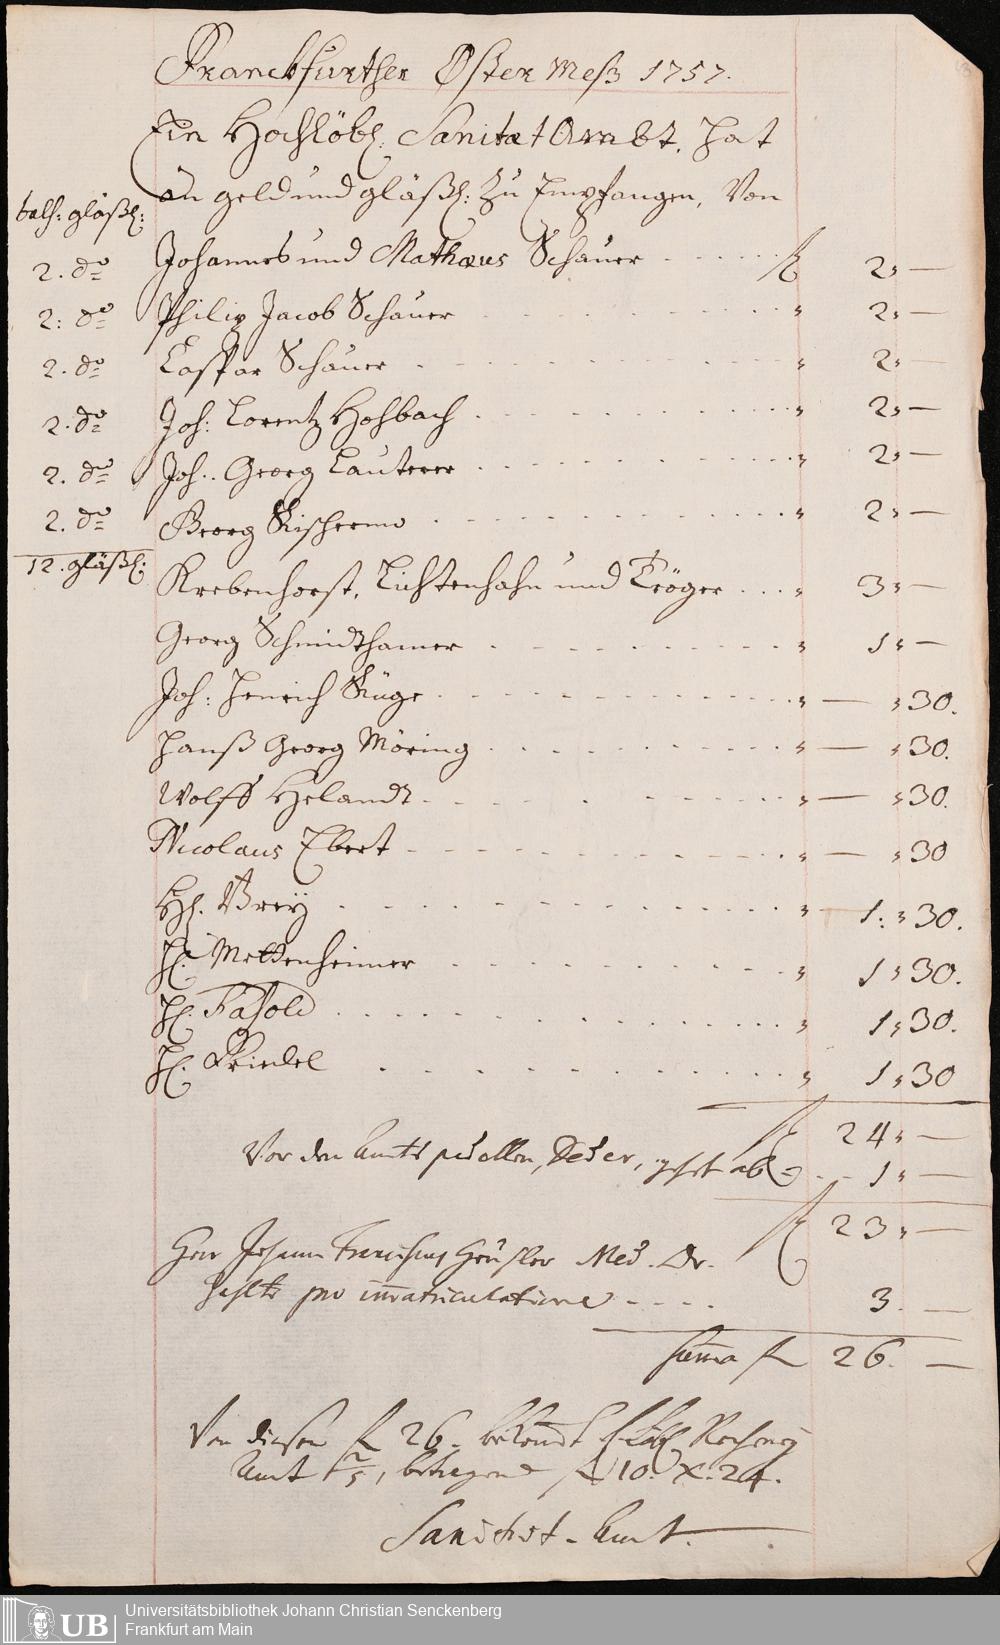 Franckfurther Oster Meß 1757.
Ein Hochlöbl. Sanitæt Ambt. Hat
an geld und gläßl: Zu Empfangen, Von
bals: gläßl:
2. do Johannes und Mathæus Schauer - - - - - fl 2, —
2: do Philip Jacob Schauer - - - - - " 2, —
2. do Caspar Schauer - - - - - " 2, —
2. do Joh: Lorentz Hohbach - - - - - " 2, —
2. do Joh.. Georg Lauterer - - - - - " 2, —
2. do Georg - - - - - " 2, —
12. gläßl: Krebenhorst, Lichtenhahn und Tröger - - - " 3, —
Georg Schmidthamer - - - - - " 1, —
Joh: Henrich Rüge - - - - - " — , 30.
Hanß Georg Möring - - - - - " — , 30.
Wolff Helandt - - - - - " — , 30.
Nicolaus Ebert - - - - - " — , 30
Hl. Brey - - - - - " 1: , 30.
Hl. Mettenheimer - - - - - " 1, 30.
Hl. Fasold - - - - - " 1, 30.
Hl. Friedel - - - - - " 1, 30
fl 24, —
Vor den Ambts pedellen, Deder, geht ab - - 1, —
fl 23, —
Herr Johann Franciscus Med. Dr.
zahlte pro immatriculatione - - - - 3. —
summa fl 26. —
Von diesen fl 26. bekommt Löbl. Rechney
Amt 2/5, betragend fl 10. x. 24.
Sanitæt-Amt.
UB
Universitätsbibliothek Johann Christian Senckenberg
Frankfurt am Main